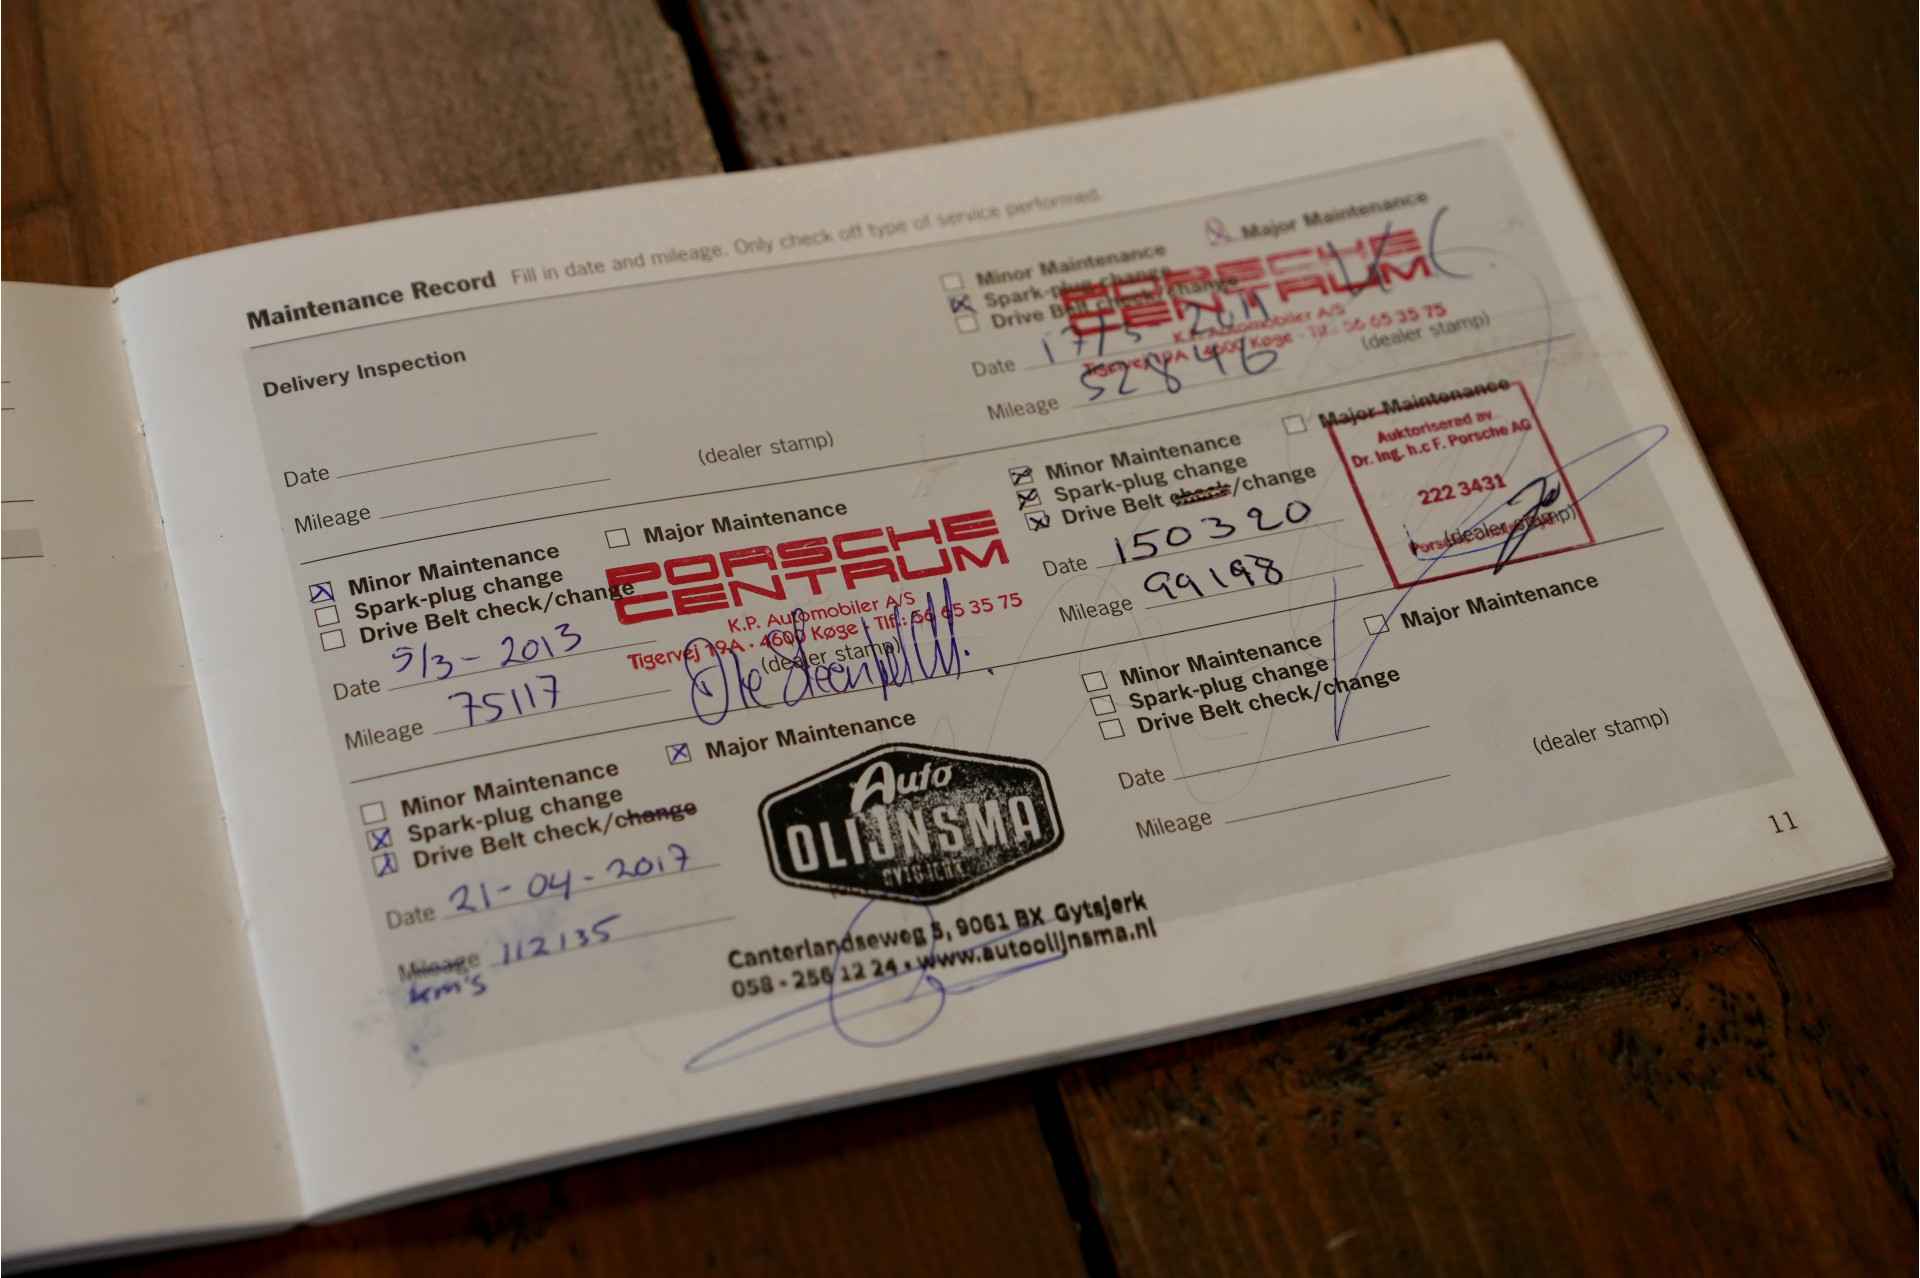 Maintenance Record Fill in date and mileage. Only check off type of service performed.
Delivery Inspection
Date
Mileage
(dealer stamp)
Minor Maintenance
Major Maintenance
Spark-plug change
Drive Belt check/change
PORSCHE
CENTRUM
K.P. Automobiler A/S
Tigervej 19A · 4600 Køge · Tlf.: 56 65 35 75
Date 17/5 2011
(dealer stamp)
Mileage 52846
Minor Maintenance
Major Maintenance
Spark-plug change
Drive Belt check/change
PORSCHE
CENTRUM
K.P. Automobiler A/S
Tigervej 19A · 4600 Køge · Tlf.: 56 65 35 75
Date 5/3 - 2013
(dealer stamp)
Mileage 75117
Minor Maintenance
Major Maintenance
Spark-plug change
Drive Belt check/change
Auktoriserad av
Dr. Ing. h.c F. Porsche AG
222 3431
Date 150320
(dealer stamp)
Mileage 99198
Minor Maintenance
Major Maintenance
Spark-plug change
Drive Belt check/change
Auto
OLIJNSMA
GYTSJERK
Canterlandseweg 5, 9061 BX Gytsjerk
058 - 256 12 24 • www.autoolijnsma.nl
Date 21-04-2017
Mileage 112135
km's
Minor Maintenance
Major Maintenance
Spark-plug change
Drive Belt check/change
Date
(dealer stamp)
Mileage
11